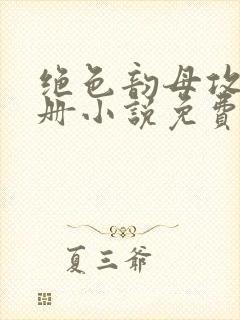 绝色韵母攻
册小说免费
夏三爷